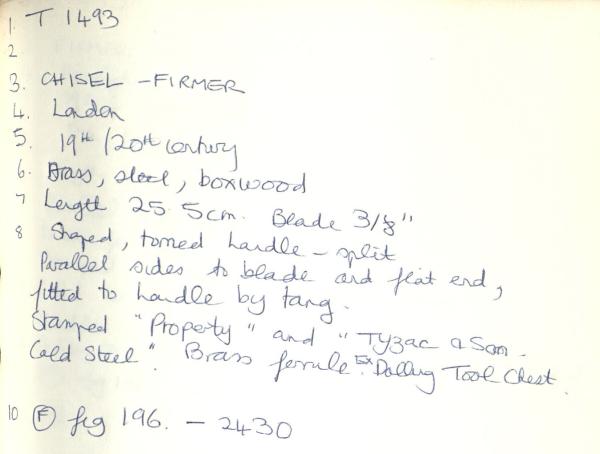 1. T 1493
2
3. CHISEL - FIRMER
4. London
5. 19th/20th century
6. Brass, steel, boxwood
7 Length 25.5cm. Blade 3/8"
8 Shaped, turned handle - split
Parallel sides to blade and flat end,
fitted to handle by tang.
Stamped "Property" and "Tyzac & Son.
Cold Steel". Brass ferrule. Ex. Dalling Tool Chest.
10 (F) fig 196. - 2430